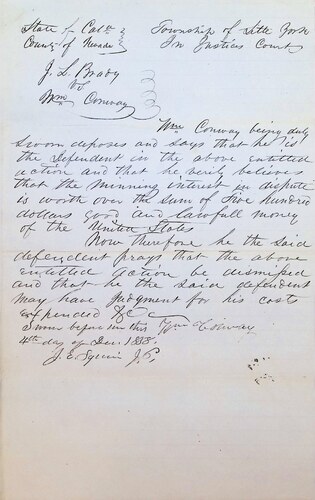 State of Cala Township of Little York
County of Nevada In Justices Court
J. L. Brady
vs
Wm Conway
Wm Conway being duly
sworn deposes and says that he is
the defendent in the above entitled
action and that he verily believes
that the minning interest in dispute
is worth over the sum of five hundred
dollars good and lawfull money
of the United States
Now therefore he the said
defendent prays that the above
entitled action be dismissed
and that he the said defendent
may have judgment for his costs
expended &c
Sworn before me this Wm Conway
4th day of Dec.
J. E. J.P.